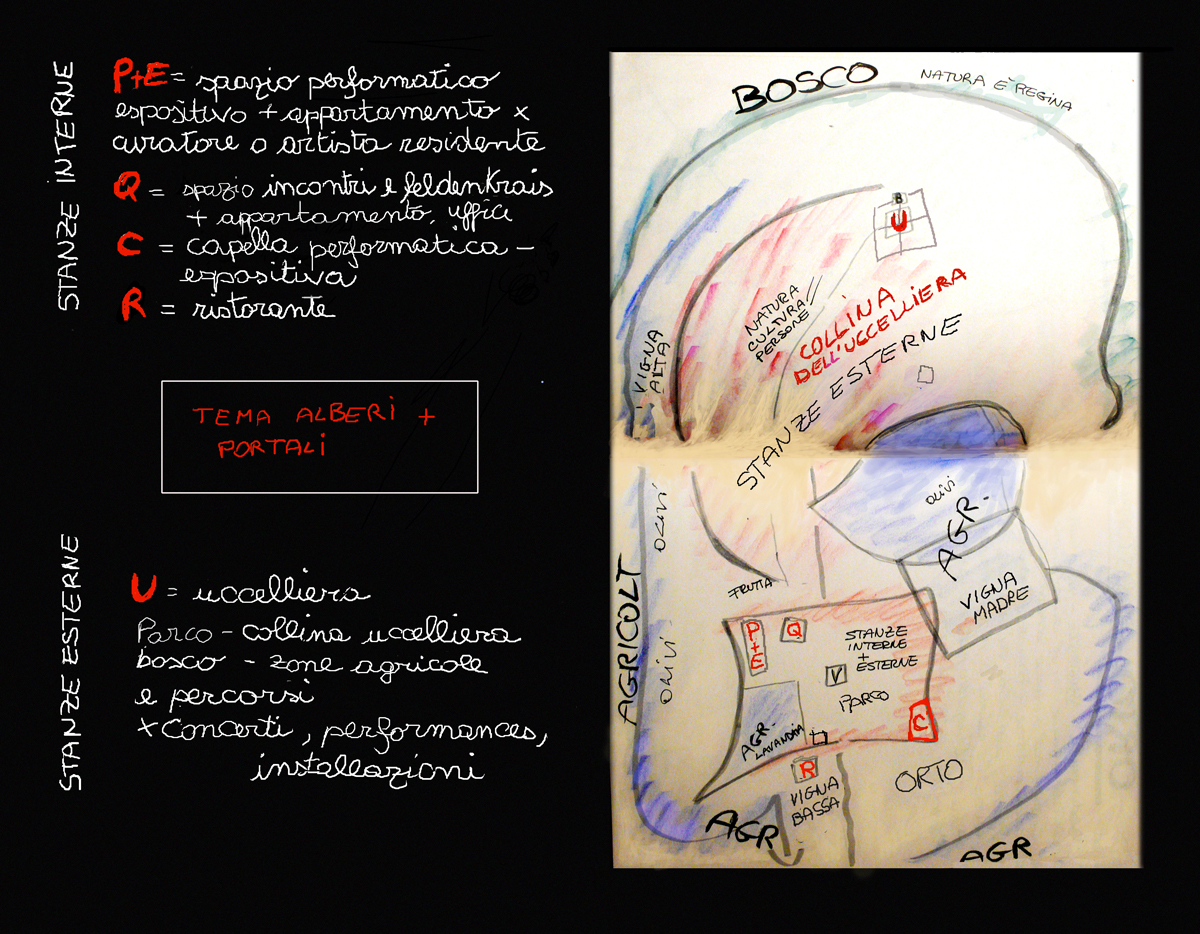 STANZE INTERNE
P+E = spazio performatico
espositivo + appartamento x
curatore o artista residente
Q = spazio incontri e feldenkrais
+ appartamento, uffici
C = capella performatica -
espositiva
R = ristorante
TEMA ALBERI +
PORTALI
STANZE ESTERNE
U = uccelliera
Parco - collina uccelliera
bosco - zone agricole
e percorsi
x concerti, performances,
installazioni
BOSCO
NATURA È REGINA
B
U
NATURA
CULTURA
PERSONE
COLLINA
DELL'UCCELLIERA
STANZE ESTERNE
VIGNA
ALTA
OLIVI
OLIVI
AGR.
VIGNA
MADRE
AGRICOLT
OLIVI
FRUTTA
P+E
Q
STANZE
INTERNE
+
ESTERNE
V
PARCO
C
AGR.
LAVANDA
R
VIGNA
BASSA
ORTO
AGR
AGR